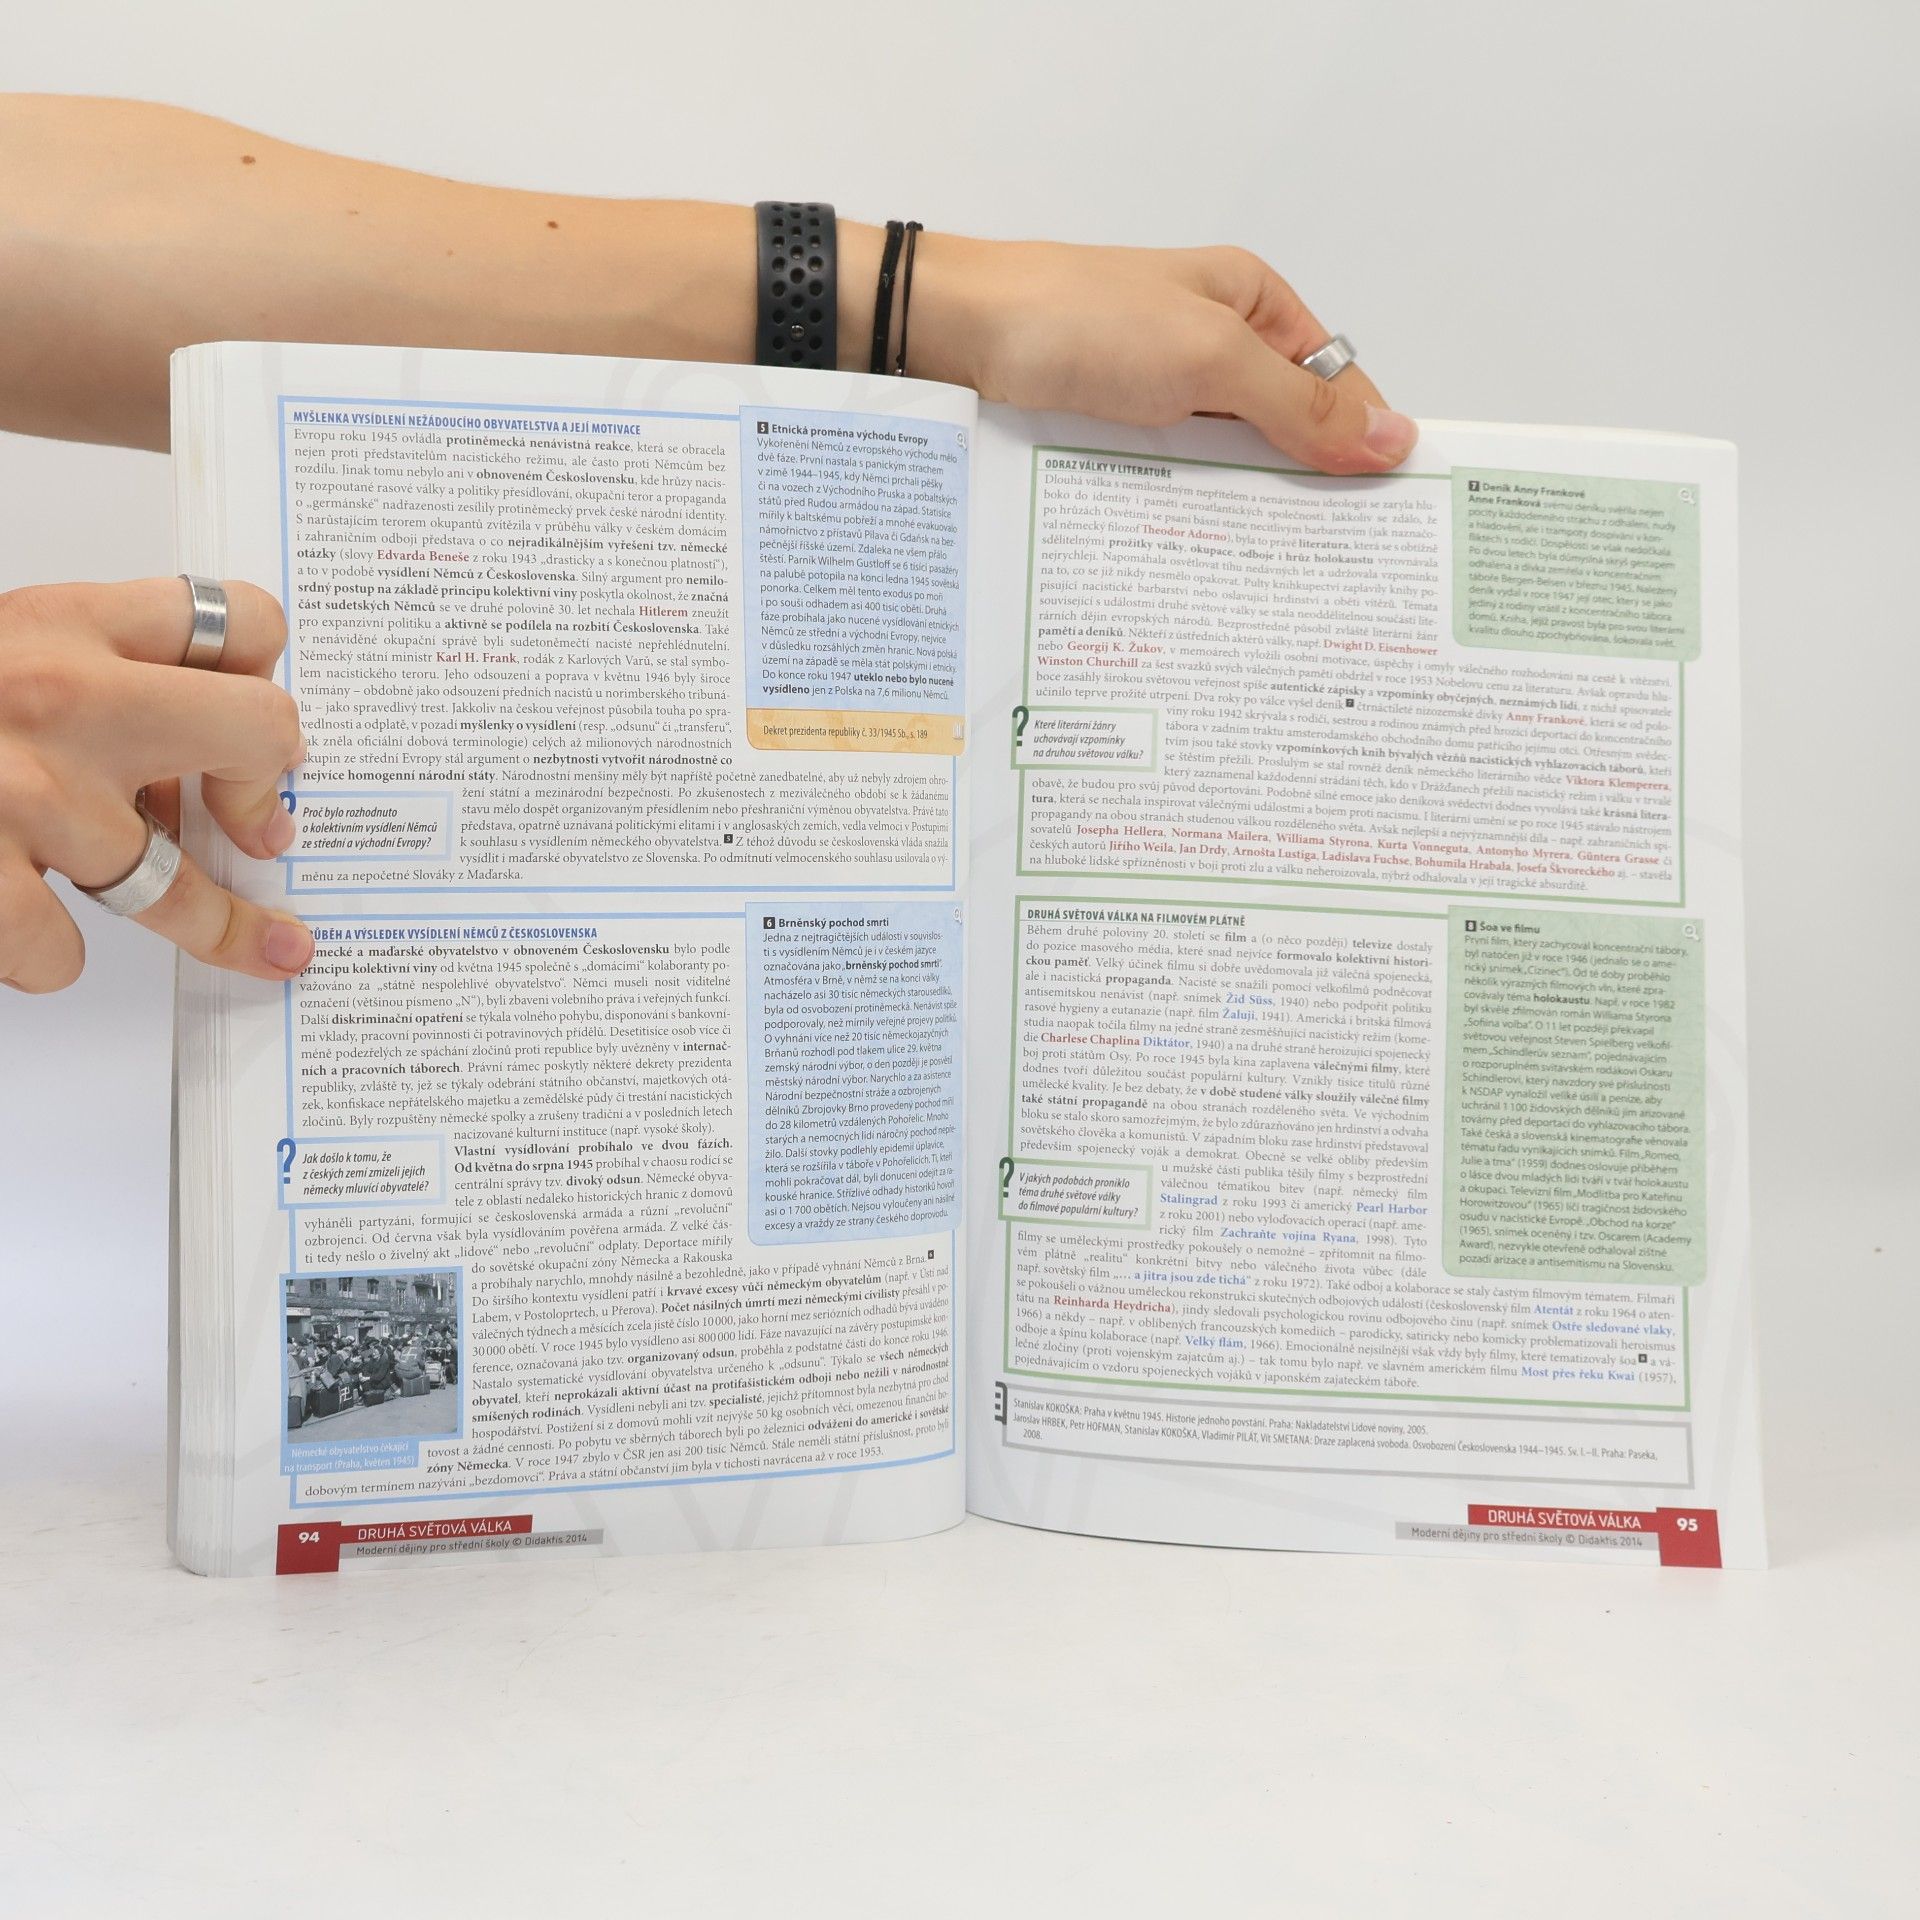 MYŠLENKA VYSÍDLENÍ NEŽÁDOUCÍHO OBYVATELSTVA A JEJÍ MOTIVACE
Evropu roku 1945 ovládla protiněmecká nenávistná reakce, která se obracela
nejen proti představitelům nacistického režimu, ale často proti Němcům bez
rozdílu. Jinak tomu nebylo ani v obnoveném Československu, kde hrůzy nacis-
ty rozpoutané rasové války a politiky přesídlování, okupační teror a propaganda
o „germánské“ nadřazenosti zesílily protiněmecký prvek české národní identity.
S narůstajícím terorem okupantů zvítězila v průběhu války v českém domácím
i zahraničním odboji představa o co nejradikálnějším vyřešení tzv. německé
otázky (slovy Edvarda Beneše z roku 1943 „drasticky a s konečnou platností“),
a to v podobě vysídlení Němců z Československa. Silný argument pro nemilo-
srdný postup na základě principu kolektivní viny poskytla okolnost, že značná
část sudetských Němců se ve druhé polovině 30. let nechala Hitlerem zneužít
pro expanzivní politiku a aktivně se podílela na rozbití Československa. Také
v nenáviděné okupační správě byli sudetoněmečtí nacisté nepřehlédnutelní.
Německý státní ministr Karl H. Frank, rodák z Karlových Varů, se stal symbo-
lem nacistického teroru. Jeho odsouzení a poprava v květnu 1946 byly široce
vnímány – obdobně jako odsouzení předních nacistů u norimberského tribuná-
lu – jako spravedlivý trest. Jakkoliv na českou veřejnost působila touha po spra-
vedlnosti a odplatě, v pozadí myšlenky o vysídlení (resp. „odsunu“ či „transferu“,
ak zněla oficiální dobová terminologie) celých až milionových národnostních
skupin ze střední Evropy stál argument o nezbytnosti vytvořit národnostně co
nejvíce homogenní národní státy. Národnostní menšiny měly být napříště početně zanedbatelné, aby už nebyly zdrojem ohro-
žení státní a mezinárodní bezpečnosti. Po zkušenostech z meziválečného období se k žádanému
stavu mělo dospět organizovaným přesídlením nebo přeshraniční výměnou obyvatelstva. Právě tato
představa, opatrně uznávaná politickými elitami i v anglosaských zemích, vedla velmoci v Postupimi
k souhlasu s vysídlením německého obyvatelstva. 5 Z téhož důvodu se československá vláda snažila
vysídlit i maďarské obyvatelstvo ze Slovenska. Po odmítnutí velmocenského souhlasu usilovala o vý-
měnu za nepočetné Slováky z Maďarska.
? Proč bylo rozhodnuto
o kolektivním vysídlení Němců
ze střední a východní Evropy?
5 Etnická proměna východu Evropy
Vykořenění Němců z evropského východu mělo
dvě fáze. První nastala s panickým strachem
v zimě 1944–1945, kdy Němci prchali pěšky
či na vozech z Východního Pruska a pobaltských
států před Rudou armádou na západ. Statisíce
mířily k baltskému pobřeží a mnohé evakuovalo
námořnictvo z přístavů Pilava či Gdaňsk na bez-
pečnější říšské území. Zdaleka ne všem přálo
štěstí. Parník Wilhelm Gustloff se 6 tisíci pasažéry
na palubě potopila na konci ledna 1945 sovětská
ponorka. Celkem měl tento exodus po moři
i po souši odhadem asi 400 tisíc obětí. Druhá
fáze probíhala jako nucené vysídlování etnických
Němců ze střední a východní Evropy, nejvíce
v důsledku rozsáhlých změn hranic. Nová polská
území na západě se měla stát polskými i etnicky.
Do konce roku 1947 uteklo nebo bylo nuceně
vysídleno jen z Polska na 7,6 milionu Němců.
Dekret prezidenta republiky č. 33/1945 Sb., s. 189
ŮBĚH A VÝSLEDEK VYSÍDLENÍ NĚMCŮ Z ČESKOSLOVENSKA
mecké a maďarské obyvatelstvo v obnoveném Československu bylo podle
principu kolektivní viny od května 1945 společně s „domácími“ kolaboranty po-
važováno za „státně nespolehlivé obyvatelstvo“. Němci museli nosit viditelné
označení (většinou písmeno „N“), byli zbaveni volebního práva i veřejných funkcí.
Další diskriminační opatření se týkala volného pohybu, disponování s bankovní-
mi vklady, pracovní povinnosti či potravinových přídělů. Desetitisíce osob více či
méně podezřelých ze spáchání zločinů proti republice byly uvězněny v internač-
ních a pracovních táborech. Právní rámec poskytly některé dekrety prezidenta
republiky, zvláště ty, jež se týkaly odebrání státního občanství, majetkových otá-
zek, konfiskace nepřátelského majetku a zemědělské půdy či trestání nacistických
zločinů. Byly rozpuštěny německé spolky a zrušeny tradiční a v posledních letech
nacizované kulturní instituce (např. vysoké školy).
Vlastní vysídlování probíhalo ve dvou fázích.
Od května do srpna 1945 probíhal v chaosu rodící se
centrální správy tzv. divoký odsun. Německé obyva-
tele z oblastí nedaleko historických hranic z domovů
vyháněli partyzáni, formující se československá armáda a různí „revoluční“
ozbrojenci. Od června však byla vysídlováním pověřena armáda. Z velké čás-
ti tedy nešlo o živelný akt „lidové“ nebo „revoluční“ odplaty. Deportace mířily
do sovětské okupační zóny Německa a Rakouska
a probíhaly narychlo, mnohdy násilně a bezohledně, jako v případě vyhnání Němců z Brna. 6
Do širšího kontextu vysídlení patří i krvavé excesy vůči německým obyvatelům (např. v Ústí nad
Labem, v Postoloprtech, u Přerova). Počet násilných úmrtí mezi německými civilisty přesáhl v po-
válečných týdnech a měsících zcela jistě číslo 10 000, jako horní mez seriózních odhadů bývá uváděno
30 000 obětí. V roce 1945 bylo vysídleno asi 800 000 lidí. Fáze navazující na závěry postupimské kon-
ference, označovaná jako tzv. organizovaný odsun, proběhla z podstatné části do konce roku 1946.
Nastalo systematické vysídlování obyvatelstva určeného k „odsunu“. Týkalo se všech německých
obyvatel, kteří neprokázali aktivní účast na protifašistickém odboji nebo nežili v národnostně
smíšených rodinách. Vysídleni nebyli ani tzv. specialisté, jejichž přítomnost byla nezbytná pro chod
hospodářství. Postižení si z domovů mohli vzít nejvýše 50 kg osobních věcí, omezenou finanční ho-
tovost a žádné cennosti. Po pobytu ve sběrných táborech byli po železnici odváženi do americké i sovětské
zóny Německa. V roce 1947 zbylo v ČSR jen asi 200 tisíc Němců. Stále neměli státní příslušnost, proto byli
dobovým termínem nazýváni „bezdomovci“. Práva a státní občanství jim byla v tichosti navrácena až v roce 1953.
? Jak došlo k tomu, že
z českých zemí zmizeli jejich
německy mluvící obyvatelé?
Německé obyvatelstvo čekající
na transport (Praha, květen 1945)
6 Brněnský pochod smrti
Jedna z nejtragičtějších událostí v souvislos-
ti s vysídlením Němců je i v českém jazyce
označována jako „brněnský pochod smrti“.
Atmosféra v Brně, v němž se na konci války
nacházelo asi 30 tisíc německých starousedlíků,
byla od osvobození protiněmecká. Nenávist spíše
podporovaly, než mírnily veřejné projevy politiků.
O vyhnání více než 20 tisíc německojazyčných
Brňanů rozhodl pod tlakem ulice 29. května
zemský národní výbor, o den později je posvětil
městský národní výbor. Narychlo a za asistence
Národní bezpečnostní stráže a ozbrojených
dělníků Zbrojovky Brno provedený pochod mířil
do 28 kilometrů vzdálených Pohořelic. Mnoho
starých a nemocných lidí náročný pochod nepře-
žilo. Další stovky podlehly epidemii úplavice,
která se rozšířila v táboře v Pohořelicích. Ti, kteří
mohli pokračovat dál, byli donuceni odejít za ra-
kouské hranice. Střízlivé odhady historiků hovoří
asi o 1 700 obětech. Nejsou vyloučeny ani násilné
excesy a vraždy ze strany českého doprovodu.
94 DRUHÁ SVĚTOVÁ VÁLKA
Moderní dějiny pro střední školy © Didaktis 2014
ODRAZ VÁLKY V LITERATUŘE
Dlouhá válka s nemilosrdným nepřítelem a nenávistnou ideologií se zaryla hlu-
boko do identity i paměti euroatlantických společností. Jakkoliv se zdálo, že
po hrůzách Osvětimi se psaní básní stane necitlivým barbarstvím (jak naznačo-
val německý filozof Theodor Adorno), byla to právě literatura, která se s obtížně
sdělitelnými prožitky války, okupace, odboje i hrůz holokaustu vyrovnávala
nejrychleji. Napomáhala osvětlovat tíhu nedávných let a udržovala vzpomínku
na to, co se již nikdy nesmělo opakovat. Pulty knihkupectví zaplavily knihy po-
pisující nacistické barbarství nebo oslavující hrdinství a oběti vítězů. Témata
související s událostmi druhé světové války se stala neoddělitelnou součástí lite-
rárních dějin evropských národů. Bezprostředně působil zvláště literární žánr
pamětí a deníků. Někteří z ústředních aktérů války, např. Dwight D. Eisenhower
nebo Georgij K. Žukov, v memoárech vyložili osobní motivace, úspěchy i omyly válečného rozhodování na cestě k vítězství.
Winston Churchill za šest svazků svých válečných pamětí obdržel v roce 1953 Nobelovu cenu za literaturu. Avšak opravdu hlu-
boce zasáhly širokou světovou veřejnost spíše autentické zápisky a vzpomínky obyčejných, neznámých lidí, z nichž spisovatele
učinilo teprve prožité utrpení. Dva roky po válce vyšel deník 7 čtrnáctileté nizozemské dívky Anny Frankové, která se od polo-
viny roku 1942 skrývala s rodiči, sestrou a rodinou známých před hrozící deportací do koncentračního
tábora v zadním traktu amsterodamského obchodního domu patřícího jejímu otci. Otřesným svědec-
tvím jsou také stovky vzpomínkových knih bývalých vězňů nacistických vyhlazovacích táborů, kteří
se štěstím přežili. Proslulým se stal rovněž deník německého literárního vědce Viktora Klemperera,
který zaznamenal každodenní strádání těch, kdo v Drážďanech přežili nacistický režim i válku v trvalé
obavě, že budou pro svůj původ deportováni. Podobně silné emoce jako deníková svědectví dodnes vyvolává také krásná litera-
tura, která se nechala inspirovat válečnými událostmi a bojem proti nacismu. I literární umění se po roce 1945 stávalo nástrojem
propagandy na obou stranách studenou válkou rozděleného světa. Avšak nejlepší a nejvýznamnější díla – např. zahraničních spi-
sovatelů Josepha Hellera, Normana Mailera, Williama Styrona, Kurta Vonneguta, Antonyho Myrera, Güntera Grasse či
českých autorů Jiřího Weila, Jan Drdy, Arnošta Lustiga, Ladislava Fuchse, Bohumila Hrabala, Josefa Škvoreckého aj. – stavěla
na hluboké lidské spřízněnosti v boji proti zlu a válku neheroizovala, nýbrž odhalovala v její tragické absurditě.
? Které literární žánry
uchovávají vzpomínky
na druhou světovou válku?
7 Deník Anny Frankové
Anne Franková svému deníku svěřila nejen
pocity každodenního strachu z odhalení, nudy
a hladovění, ale i trampoty dospívání v kon-
fliktech s rodiči. Dospělosti se však nedočkala.
Po dvou letech byla důmyslná skrýš gestapem
odhalena a dívka zemřela v koncentračním
táboře Bergen-Belsen v březnu 1945. Nalezený
deník vydal v roce 1947 její otec, který se jako
jediný z rodiny vrátil z koncentračního tábora
domů. Kniha, jejíž pravost byla pro svou literární
kvalitu dlouho zpochybňována, šokovala svět.
DRUHÁ SVĚTOVÁ VÁLKA NA FILMOVÉM PLÁTNĚ
Během druhé poloviny 20. století se film a (o něco později) televize dostaly
do pozice masového média, které snad nejvíce formovalo kolektivní histori-
ckou paměť. Velký účinek filmu si dobře uvědomovala již válečná spojenecká,
ale i nacistická propaganda. Nacisté se snažili pomocí velkofilmů podněcovat
antisemitskou nenávist (např. snímek Žid Süss, 1940) nebo podpořit politiku
rasové hygieny a eutanazie (např. film Žaluji, 1941). Americká i britská filmová
studia naopak točila filmy na jedné straně zesměšňující nacistický režim (kome-
die Charlese Chaplina Diktátor, 1940) a na druhé straně heroizující spojenecký
boj proti státům Osy. Po roce 1945 byla kina zaplavena válečnými filmy, které
dodnes tvoří důležitou součást populární kultury. Vznikly tisíce titulů různé
umělecké kvality. Je bez debaty, že v době studené války sloužily válečné filmy
také státní propagandě na obou stranách rozděleného světa. Ve východním
bloku se stalo skoro samozřejmým, že bylo zdůrazňováno jen hrdinství a odvaha
sovětského člověka a komunistů. V západním bloku zase hrdinství představoval
především spojenecký voják a demokrat. Obecně se velké obliby především
u mužské části publika těšily filmy s bezprostřední
válečnou tématikou bitev (např. německý film
Stalingrad z roku 1993 či americký Pearl Harbor
z roku 2001) nebo vyloďovacích operací (např. ame-
rický film Zachraňte vojína Ryana, 1998). Tyto
filmy se uměleckými prostředky pokoušely o nemožné – zpřítomnit na filmo-
vém plátně „realitu“ konkrétní bitvy nebo válečného života vůbec (dále
např. sovětský film „... a jitra jsou zde tichá“ z roku 1972). Také odboj a kolaborace se staly častým filmovým tématem. Filmaři
se pokoušeli o vážnou uměleckou rekonstrukci skutečných odbojových událostí (československý film Atentát z roku 1964 o aten-
tátu na Reinharda Heydricha), jindy sledovali psychologickou rovinu odbojového činu (např. snímek Ostře sledované vlaky,
1966) a někdy – např. v oblíbených francouzských komediích – parodicky, satiricky nebo komicky problematizovali heroismus
odboje a špínu kolaborace (např. Velký flám, 1966). Emocionálně nejsilnější však vždy byly filmy, které tematizovaly šoa 8 a vá-
lečné zločiny (proti vojenským zajatcům aj.) – tak tomu bylo např. ve slavném americkém filmu Most přes řeku Kwai (1957),
pojednávajícím o vzdoru spojeneckých vojáků v japonském zajateckém táboře.
? V jakých podobách proniklo
téma druhé světové války
do filmové populární kultury?
8 Šoa ve filmu
První film, který zachycoval koncentrační tábory,
byl natočen již v roce 1946 (jednalo se o ame-
rický snímek „Cizinec“). Od té doby proběhlo
několik výrazných filmových vln, které zpra-
covávaly téma holokaustu. Např. v roce 1982
byl skvěle zfilmován román Williama Styrona
„Sofiina volba“. O 11 let později překvapil
světovou veřejnost Steven Spielberg velkofil-
mem „Schindlerův seznam“, pojednávajícím
o rozporuplném svitavském rodákovi Oskaru
Schindlerovi, který navzdory své příslušnosti
k NSDAP vynaložil veliké úsilí a peníze, aby
uchránil 1 100 židovských dělníků jím arizované
továrny před deportací do vyhlazovacího tábora.
Také česká a slovenská kinematografie věnovala
tématu řadu vynikajících snímků. Film „Romeo,
Julie a tma“ (1959) dodnes oslovuje příběhem
o lásce dvou mladých lidí tváří v tvář holokaustu
a okupaci. Televizní film „Modlitba pro Kateřinu
Horowitzovou“ (1965) líčí tragičnost židovského
osudu v nacistické Evropě. „Obchod na korze“
(1965), snímek oceněný i tzv. Oscarem (Academy
Award), nezvykle otevřeně odhaloval zištné
pozadí arizace a antisemitismu na Slovensku.
Stanislav KOKOŠKA: Praha v květnu 1945. Historie jednoho povstání. Praha: Nakladatelství Lidové noviny, 2005.
Jaroslav HRBEK, Petr HOFMAN, Stanislav KOKOŠKA, Vladimír PILÁT, Vít SMETANA: Draze zaplacená svoboda. Osvobození Československa 1944–1945. Sv. I.–II. Praha: Paseka,
2008.
DRUHÁ SVĚTOVÁ VÁLKA 95
Moderní dějiny pro střední školy © Didaktis 2014